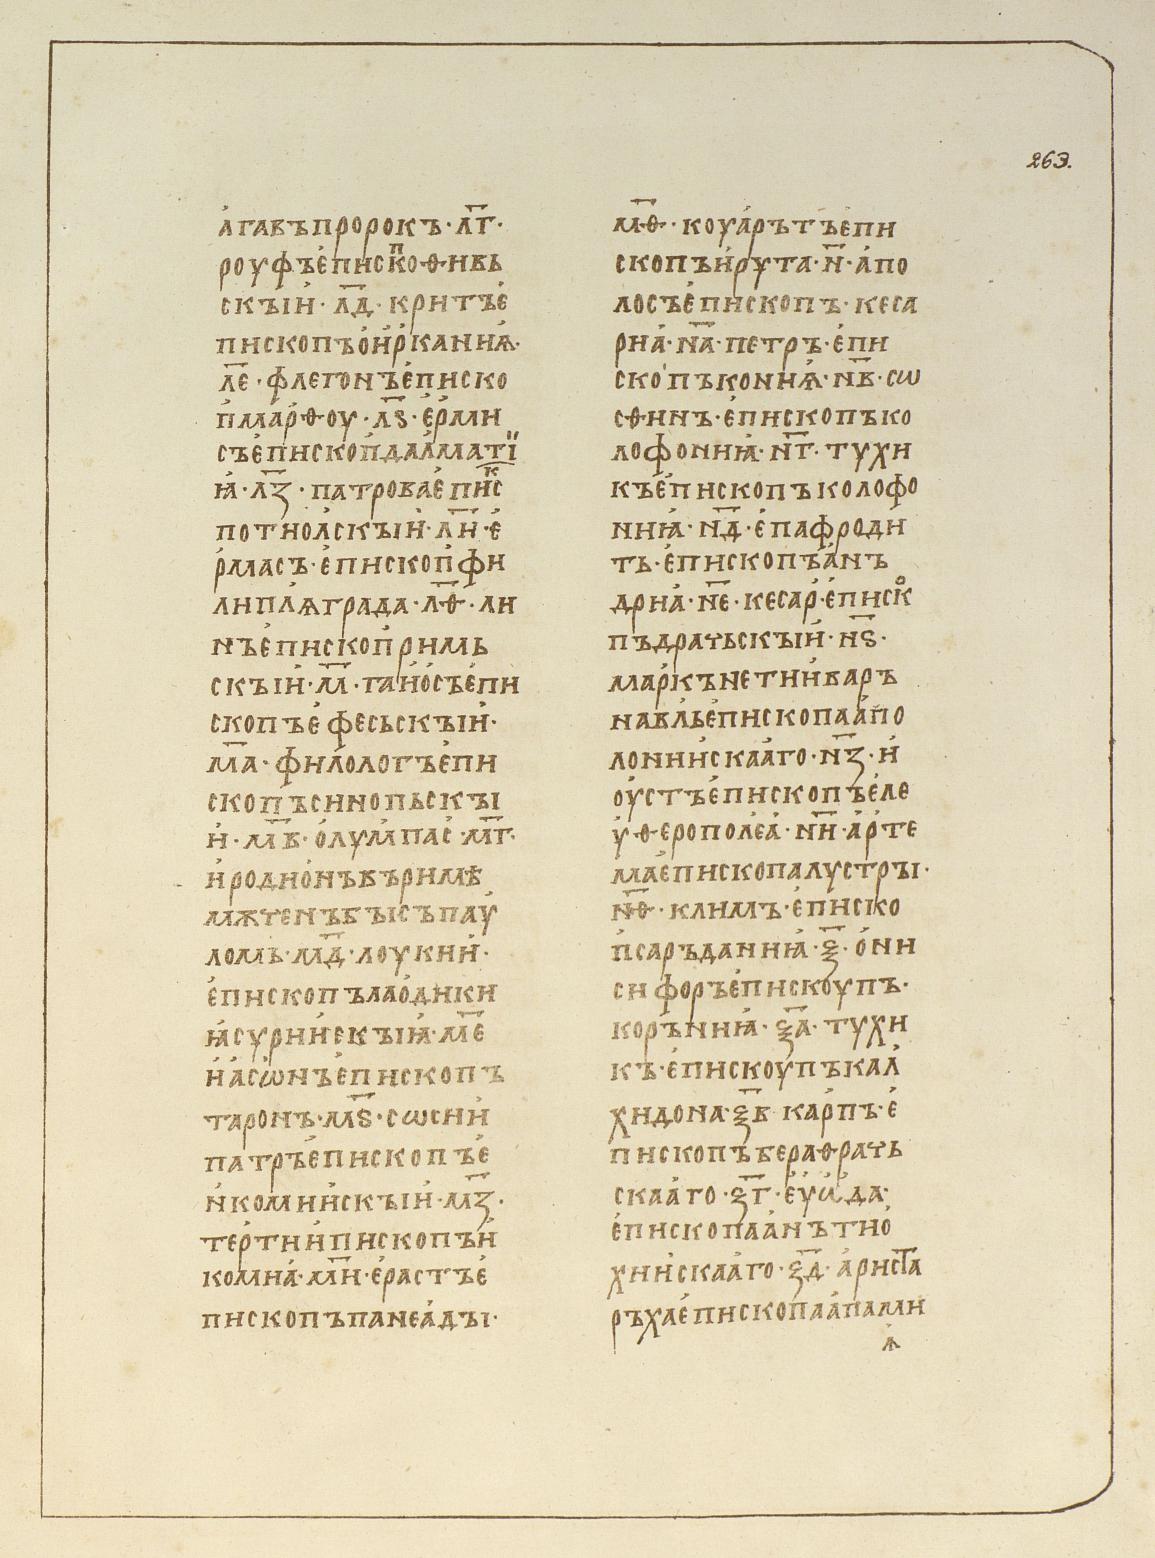 263.
а҆гавъпророкъ·л҃г·
роуфъе҆пискⷫоѳивь
скъіи҆·л҃д·критъе҆
пископъои҆рканиѩ·
л҃е·флегонъе҆писко
п҆ма́рѳоу·л҃ѕ·е҆рми
съе҆пископ҆далматі
ꙗ҆·л҃з·патровае҆пиⷦс
потиолскъіи҆·л҃и·е҆
рмасъ·е҆пископ҆фи
липлѧграда·л҃ѳ·ли
нъе҆пископ҆римь
скъіи҆·м҃·гаи҆о҆съе҆пи
скопъе҆фесьскъіи҆·
м҃а·филологъе҆пи
скопъсинопьскъі
и҆·м҃в·о҆лумпас҆·м҃г·
и҆родио҆нъвъримѣ
мѫченъбъісъпау҆
ломь·м҃д·лоукии҆·
е҆пископълаодики
ꙗ҆сурии҆скъіꙗ·м҃е
и҆а҆сѡнъе҆пископъ
таронъ·м҃ѕ·сѡсии҆
патръе҆пископъе҆
и҆комии҆скъіи҆·м҃з·
тертии҆пископъи҆
комиа҆·м҃и·е҆растъе҆
пископъпанеа҆дъі·
м҃ѳ·коуа҆рътъе҆пи
скопъи҆рута·н҃·а҆по
лосъе҆пископъ·кеса
риа҆·н҃а·петръ·е҆пи
скопъкониѩ·н҃в·сѡ
сѳинъ·е҆пископъко
лофониꙗ·н҃г·тухи
къе҆пископъколофо
ниꙗ·н҃д·е҆пафроди
тъ·е҆пископъа҆нъ
дриа҆·н҃е·кесар҆·е҆пискⷪ
пъдрачьскъіи҆·н҃ѕ·
маркънетии҆варъ
навлье҆пископаа҆по
лонии҆скаа҆го·н҃з·и҆
оу҆стъе҆пископъе҆ле
у҆ѳерополеа҆·н҃и·а҆рте
мае҆пископалустръі·
н҃ѳ·климъ·е҆писко
п҆саръданиꙗ·ѯ҃·о҆ни
сифоръе҆пискоупъ·
коръниꙗ·ѯ҃а·тухи
къ·е҆пискоупъкал҆
хидона·ѯ҃в карпъ·е҆
пископъвераѳрачь
скаа҆го·ѯ҃г·е҆у҆ѡ҆да·
е҆пископаа҆нътио҆
хии҆скаа҆го·ѯ҃д·а҆риста
ръхае҆пископаа҆пами
ѧ